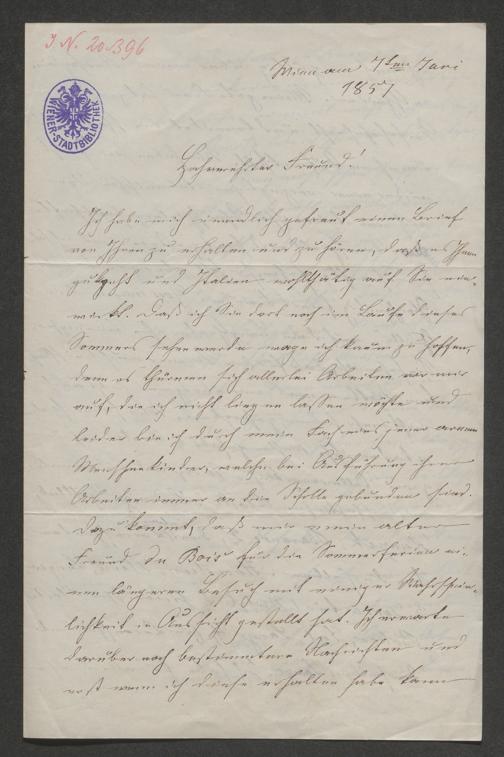 I. N. 20.396
WIENER-STADTBIBLIOTHEK
Wien am 7ten Juni
1857
Hochverehrter Freund!
Ich habe mich unendlich gefreut einen Brief
von Ihnen zu erhalten und zu hören, daß es Ihnen
gutgeht und Italien wohlthätig auf Sie ein-
wirkt. Daß ich Sie dort noch im Laufe dieses
Sommers sehen werde wage ich kaum zu hoffen,
denn es thürmen sich allerlei Arbeiten vor mir
auf, die ich nicht liegen lassen möchte und
leider bin ich durch mein Fach eines jener armen
Menschenkinder, welche bei Ausführung ihrer
Arbeiten immer an die Scholle gebunden sind.
Dazu kommt, daß mir mein alter
Freund du Bois für die Sommerferien ei-
nen längeren Besuch mit einiger Wahrschein-
lichkeit in Aussicht gestellt hat. Ich erwarte
darüber noch bestimmtere Nachrichten und
erst wenn ich diese erhalten habe kann